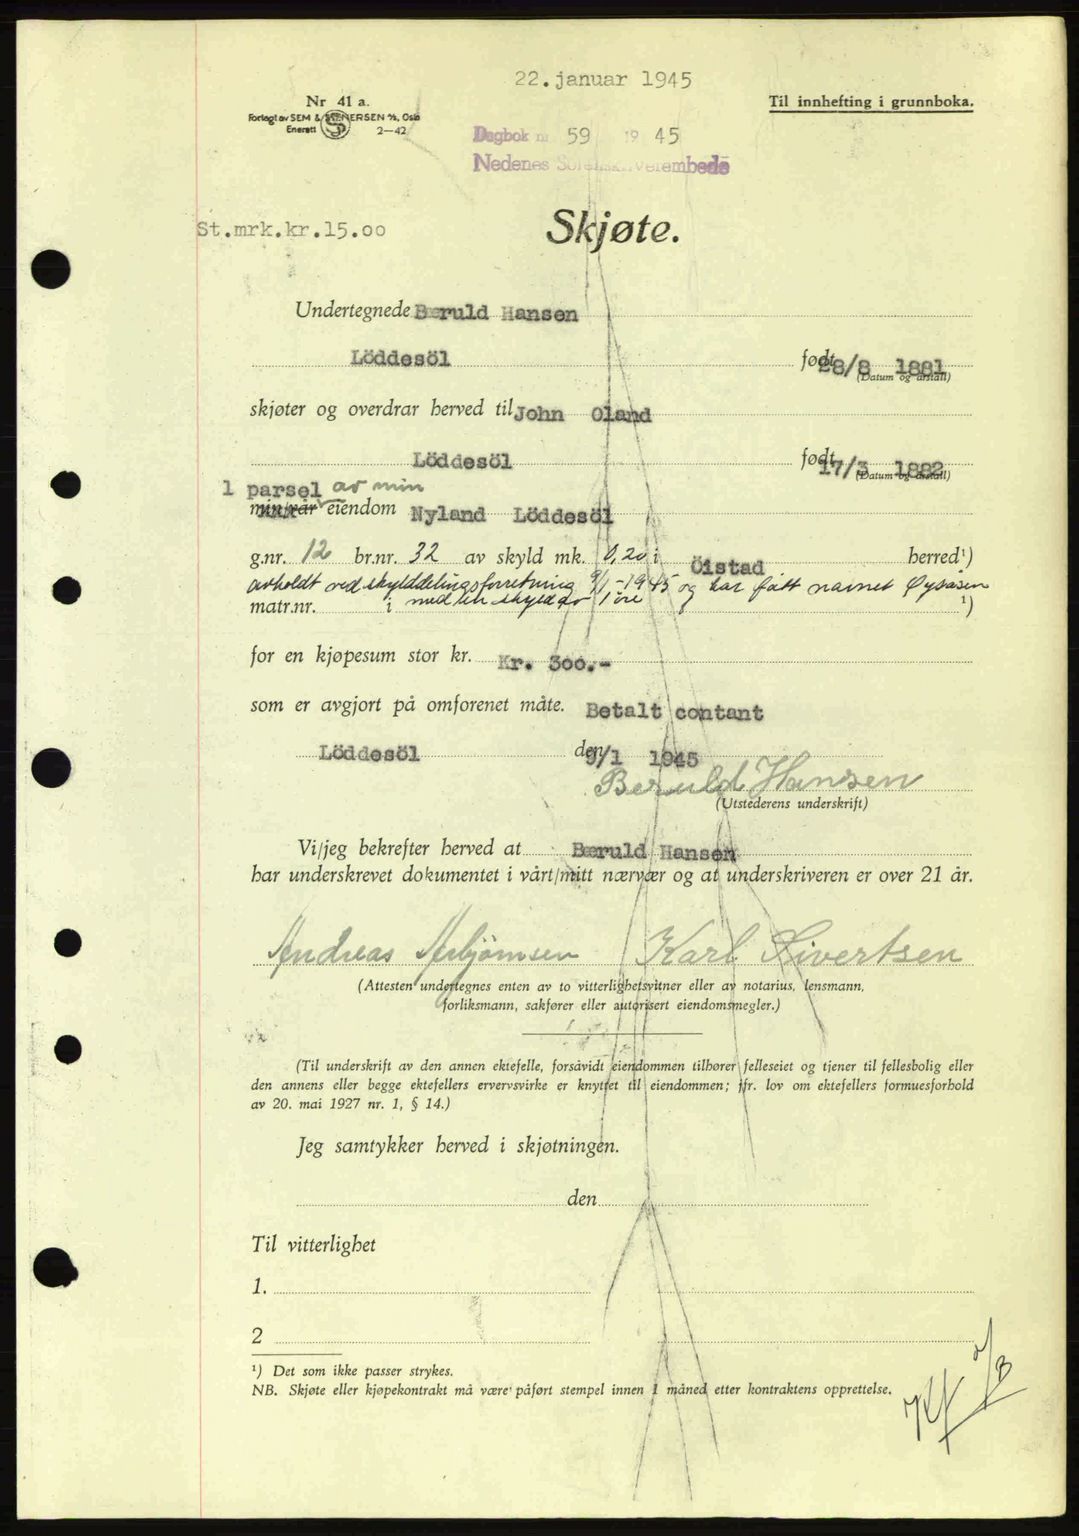 22.januar 1945
Nr 41 a.
Til innhefting i grunnboka.
Forlagt av SEM & STENERSEN A/S, Oslo
Enerett 2—42
Dagbok nr 59 19 45
Nedenes Sorenskriverembede
St.mrk.kr.15.00
Skjøte.
Undertegnede Bæruld Hansen
Löddesöl født 28/8 1881
(Datum og årstall)
skjøter og overdrar herved til John Oland
Löddesöl født 17/3 1882
(Datum og årstall)
1 parsel av min
min/vår eiendom Nyland Löddesöl
g.nr. 12 br.nr. 32 av skyld mk. 0,20 i Öistad herred¹)
avholdt ved skylddelingsforretning 9/1-1945 og har fått navnet Øysåsen
matr.nr. i med en skyld av 1 øre ¹)
for en kjøpesum stor kr. Kr. 300.-
som er avgjort på omforenet måte. Betalt contant
Löddesöl den 9/1 1945
Beruld Hansen
(Utstederens underskrift)
Vi/jeg bekrefter herved at Bæruld Hansen
har underskrevet dokumentet i vårt/mitt nærvær og at underskriveren er over 21 år.
Andreas Asbjørnsen Karl Sivertsen
(Attesten undertegnes enten av to vitterlighetsvitner eller av notarius, lensmann,
forliksmann, sakfører eller autorisert eiendomsmegler.)
(Til underskrift av den annen ektefelle, forsåvidt eiendommen tilhører felleseiet og tjener til fellesbolig eller
den annens eller begge ektefellers ervervsvirke er knyttet til eiendommen; jfr. lov om ektefellers formuesforhold
av 20. mai 1927 nr. 1, § 14.)
Jeg samtykker herved i skjøtningen.
den
Til vitterlighet
1.
2
¹) Det som ikke passer strykes.
NB. Skjøte eller kjøpekontrakt må være påført stempel innen 1 måned etter kontraktens opprettelse.